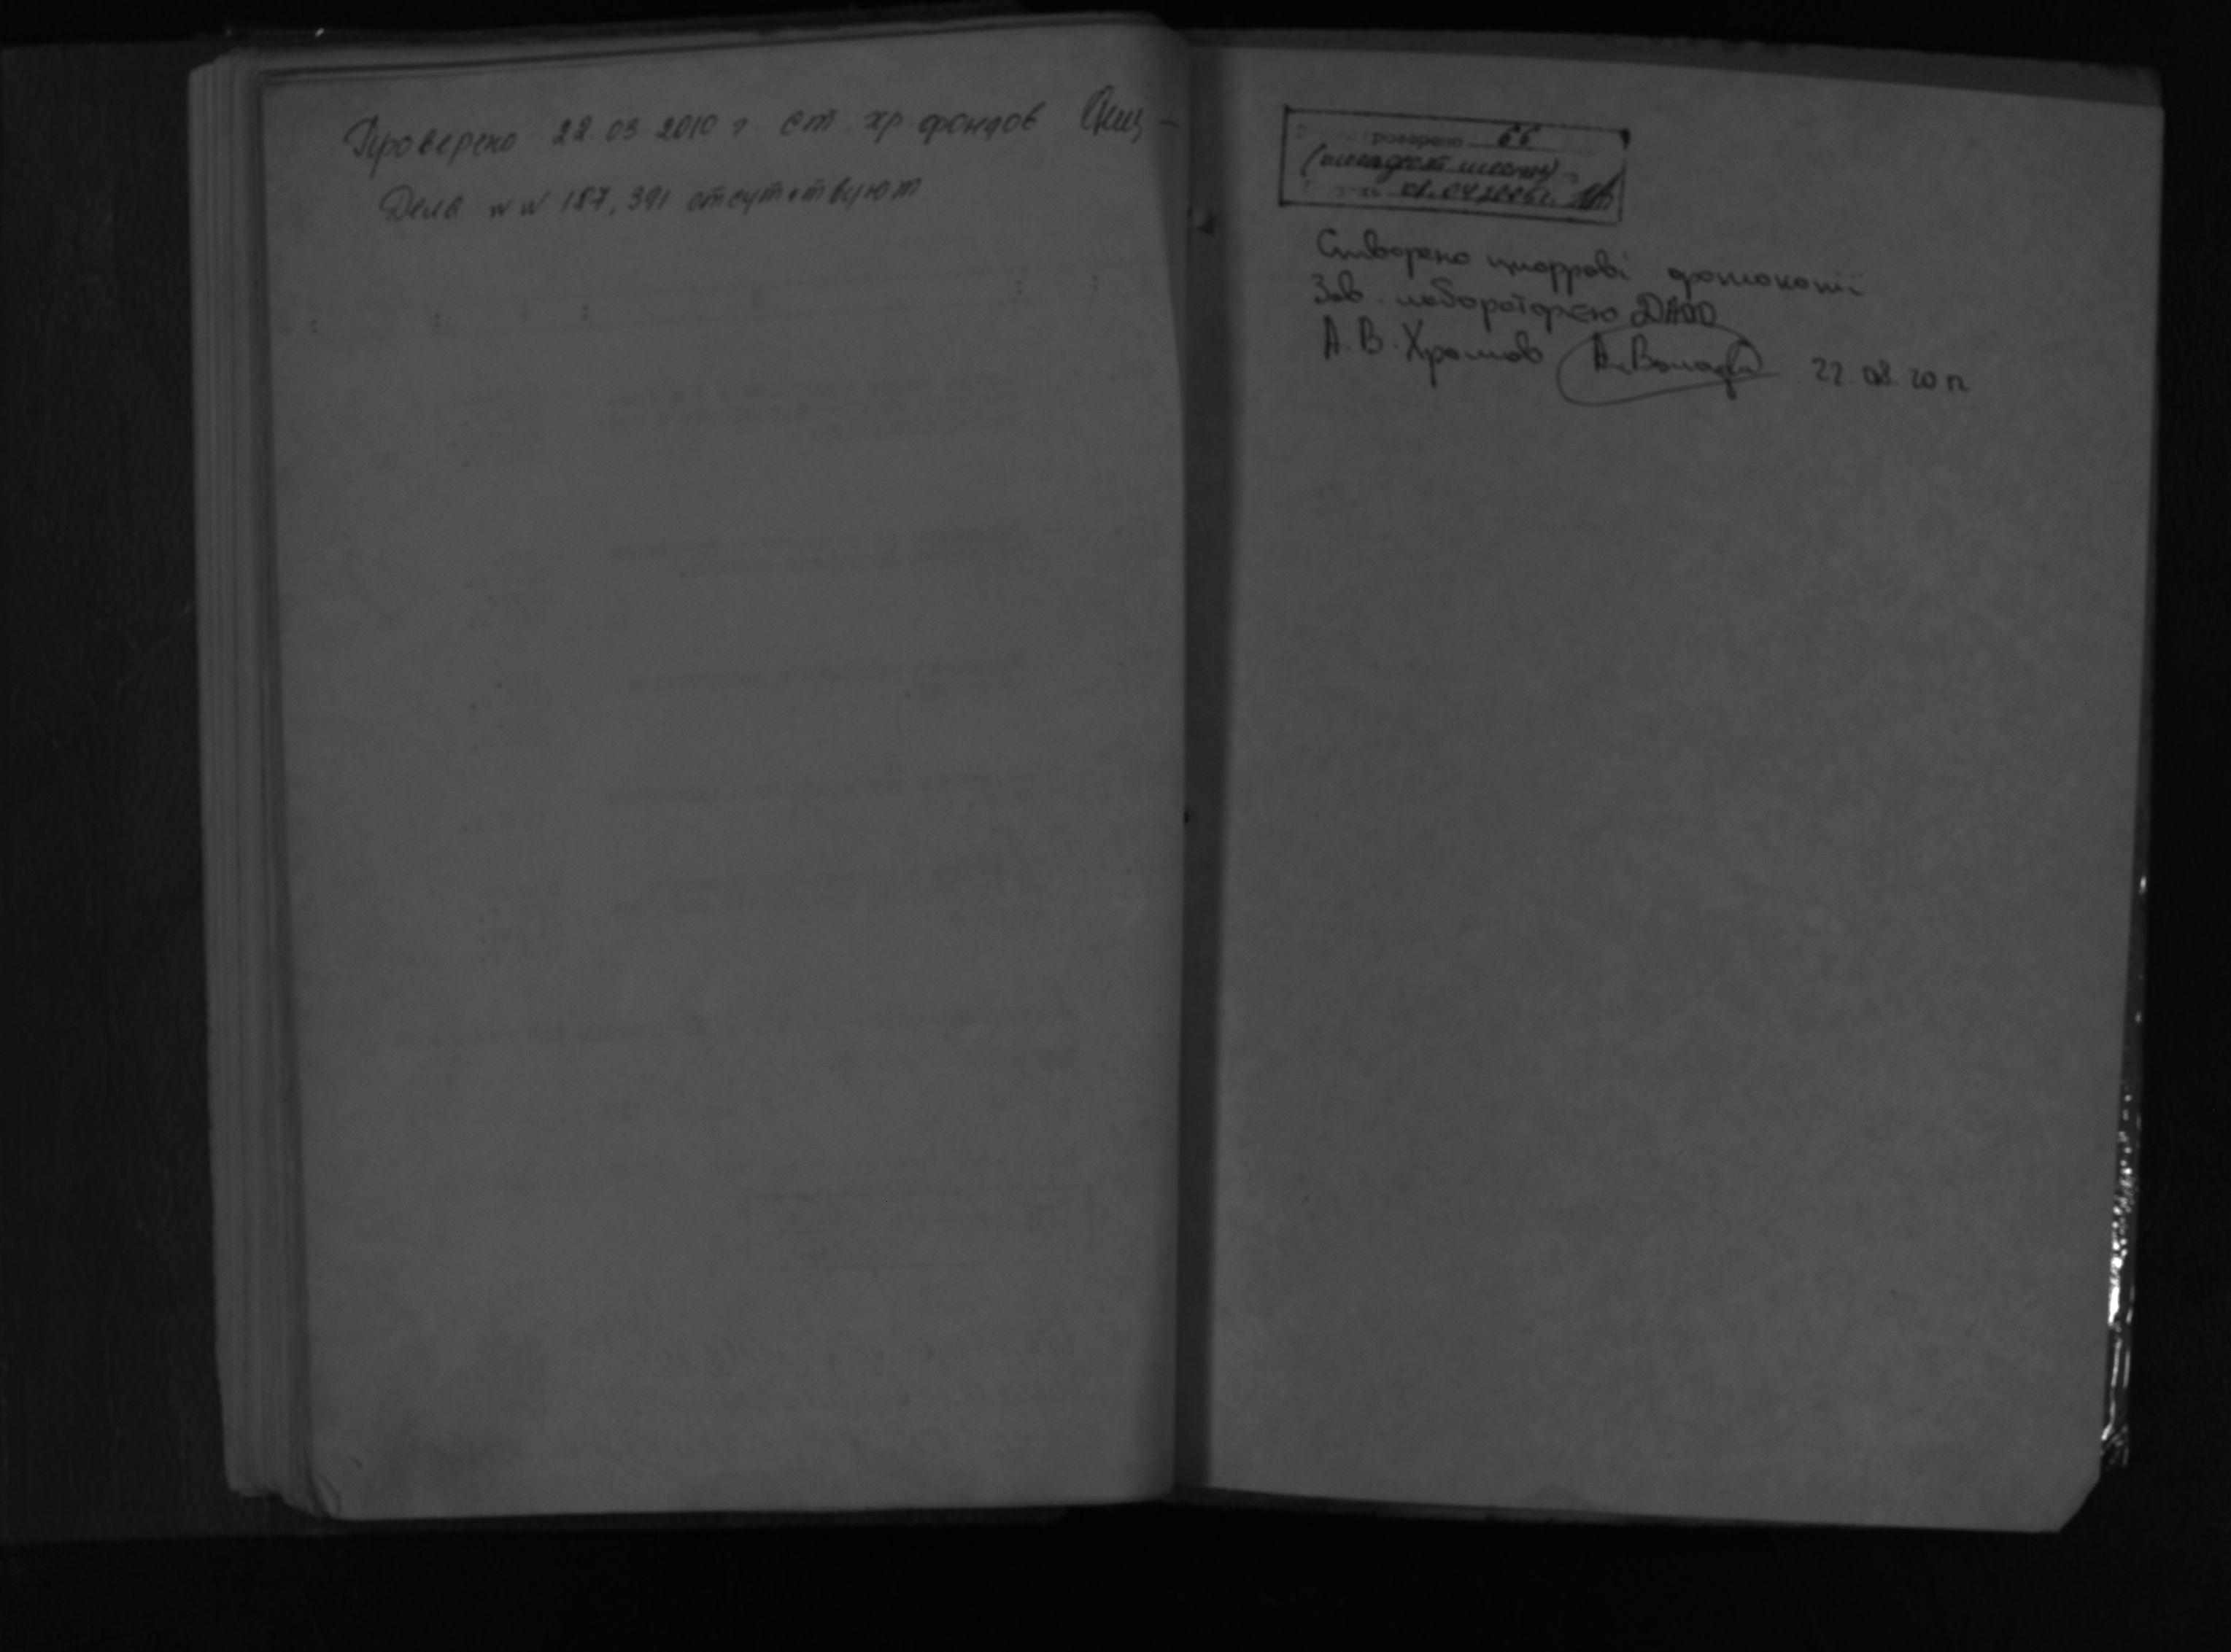 Проверено 22.03.2010 г. ст. хр. фондов
Дела NN 187, 391 отсутствуют
проверено 66
(шестьдесят шесть)
01.04.2005г.
Створено цифрові фотокопії
Зав. лабораторією ДАОО
А.В. Хромов 22.08.20